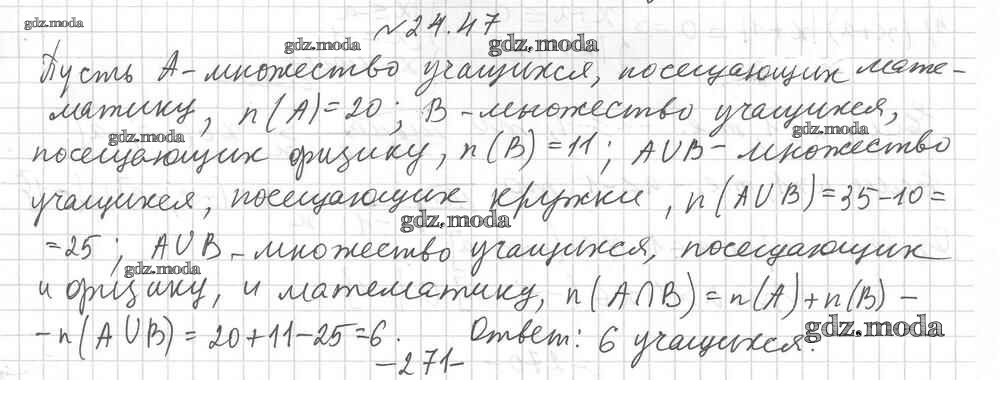 gdz.moda
№24.47
gdz.moda gdz.moda
Пусть A - множество учащихся, посещающих мате-
матику, n(A)=20; B - множество учащихся,
gdz.moda gdz.moda
посещающих физику, n(B)=11; A∪B - множество
учащихся, посещающих кружки, n(A∪B)=35-10=
gdz.moda
=25; A∪B - множество учащихся, посещающих
gdz.moda
и физику, и математику, n(A∩B)=n(A)+n(B)-
-n(A∪B)=20+11-25=6. Ответ: 6 учащихся.
gdz.moda
-271-